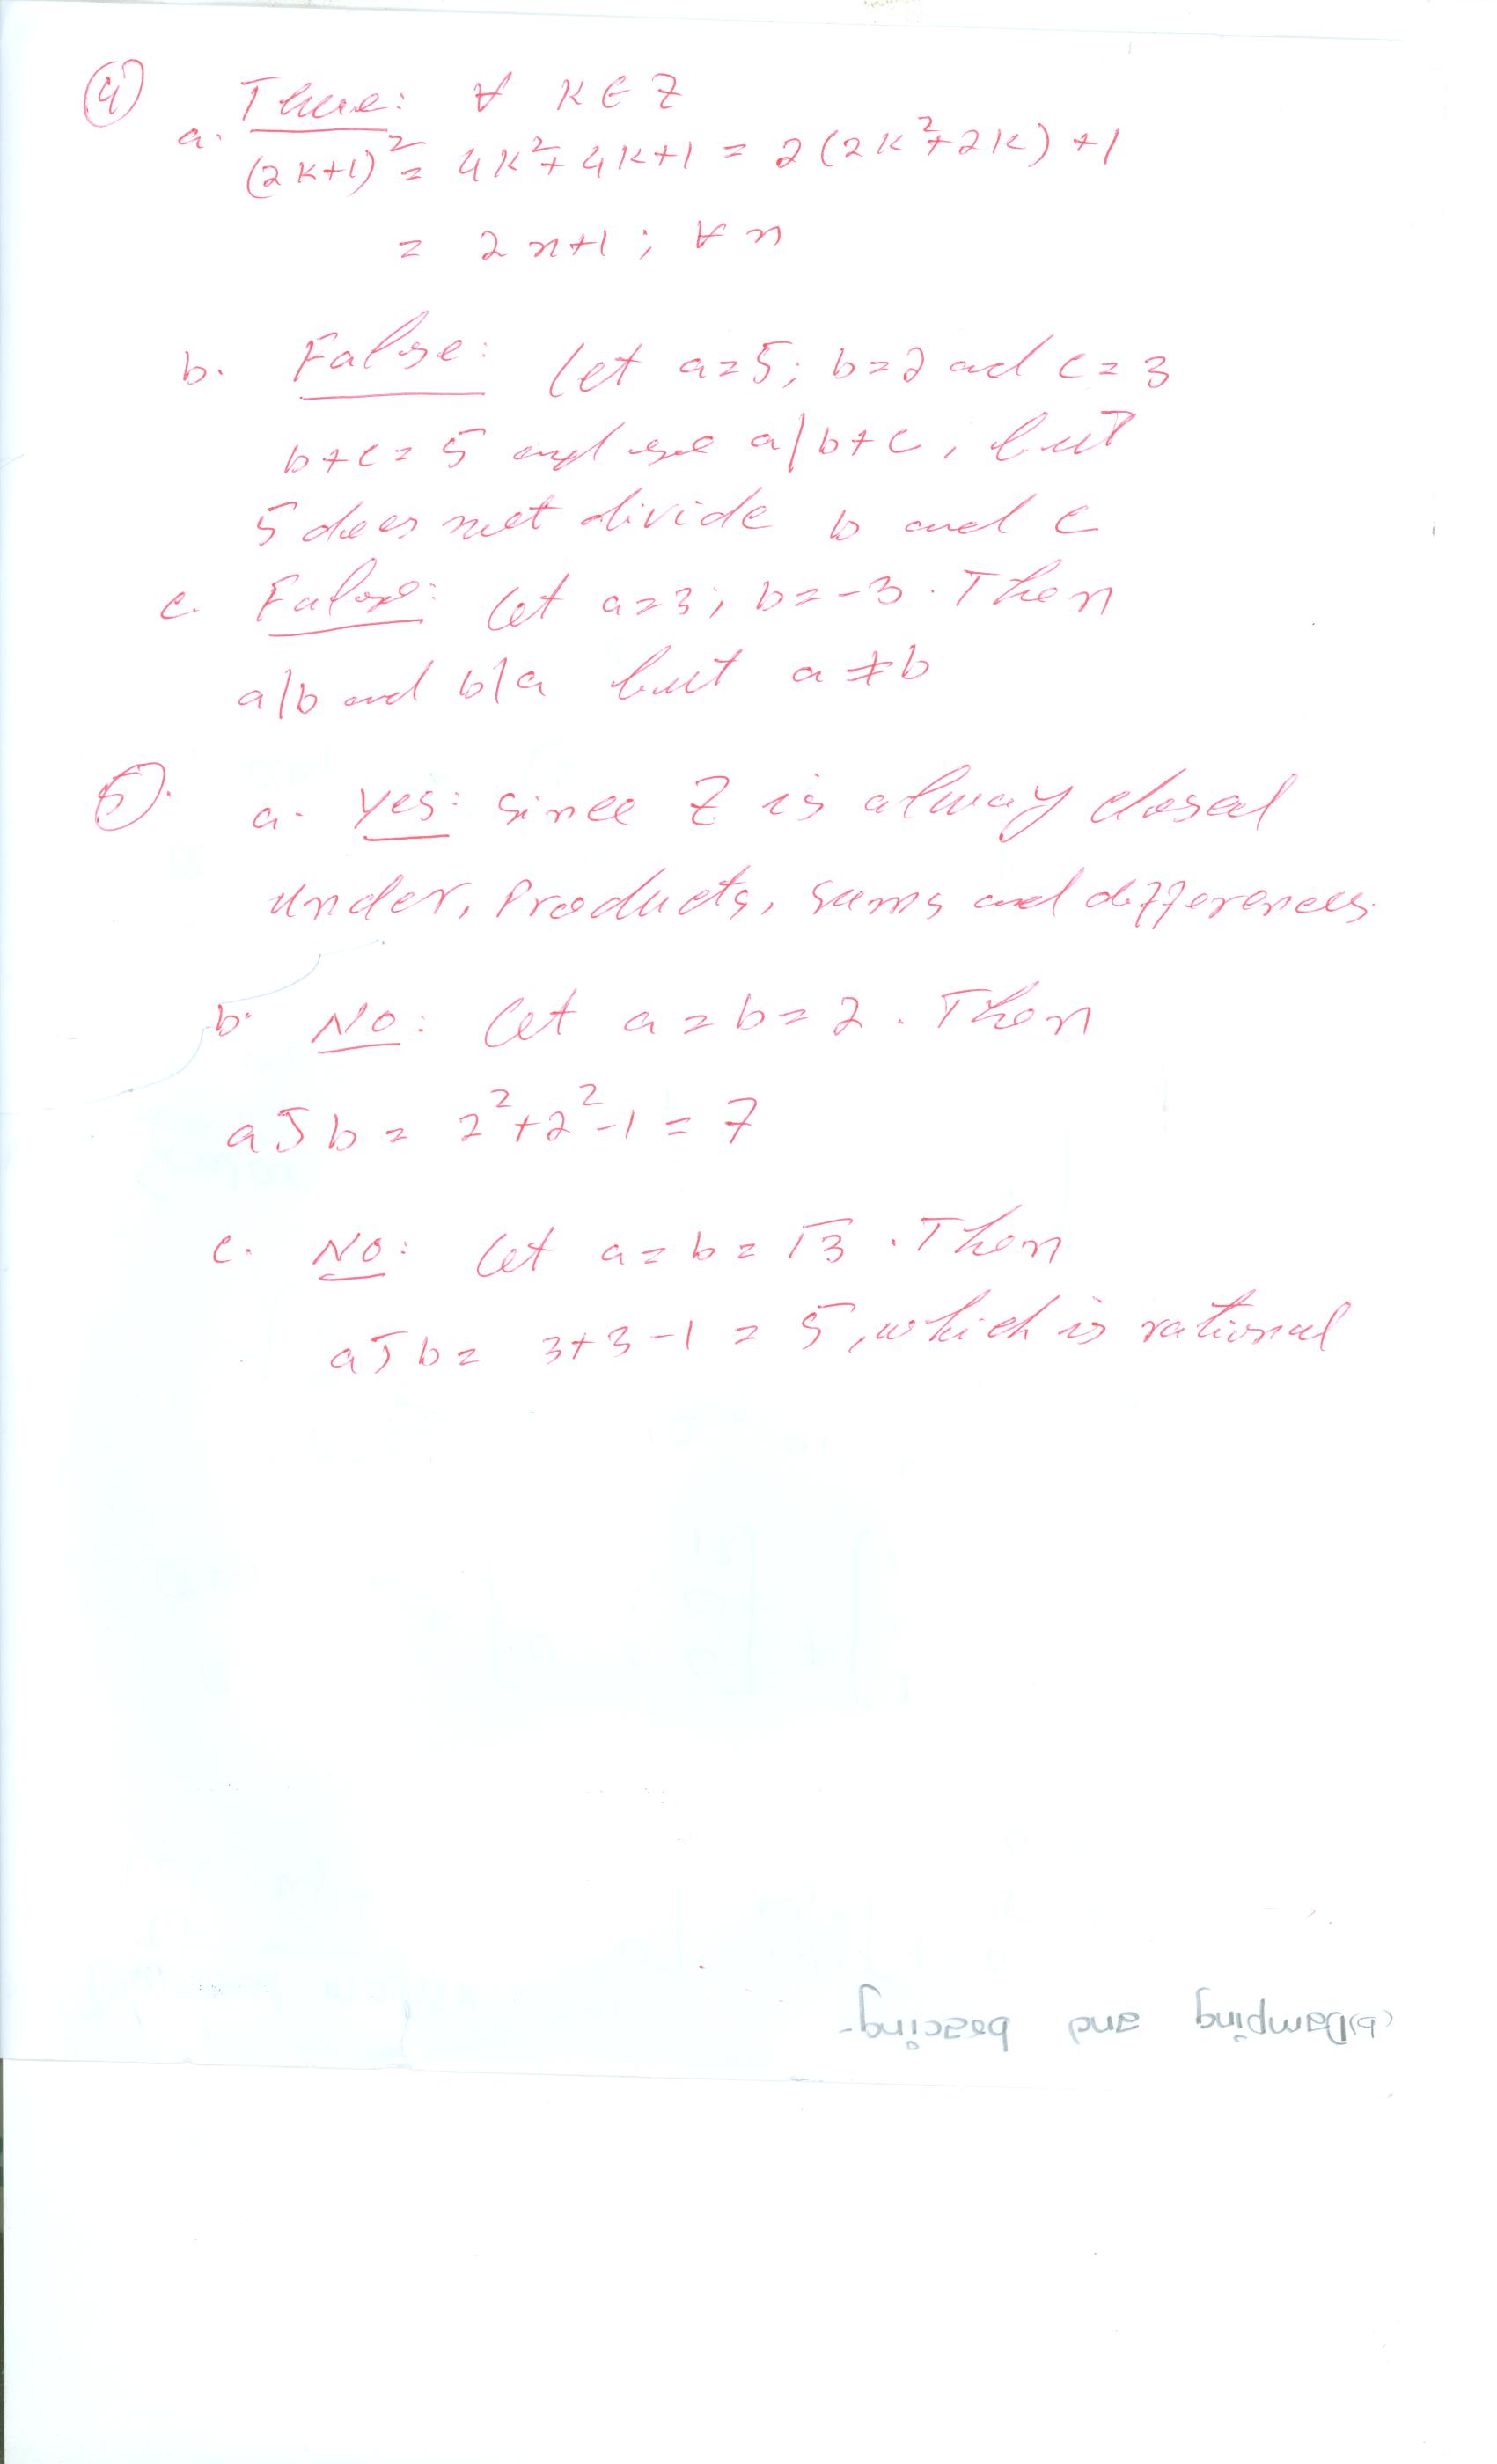 ④ True: ∀ K ∈ Z
a. (2K+1)² = 4K²+4K+1 = 2(2K²+2K)+1
= 2n+1; ∀n
b. False: Let a=5; b=2 and c=3
b+c=5 and a/b+c, but
5 does not divide b and c
c. False: Let a=3; b=-3. Then
a/b and b/a but a≠b
⑤. a. Yes: since Z is alway closed
under, Products, sums and differences.
b. NO: Let a=b=2. Then
aJb = 2²+2²-1 = 7
c. NO: Let a=b=√3. Then
aJb = 3+3-1 = 5, which is rational
and